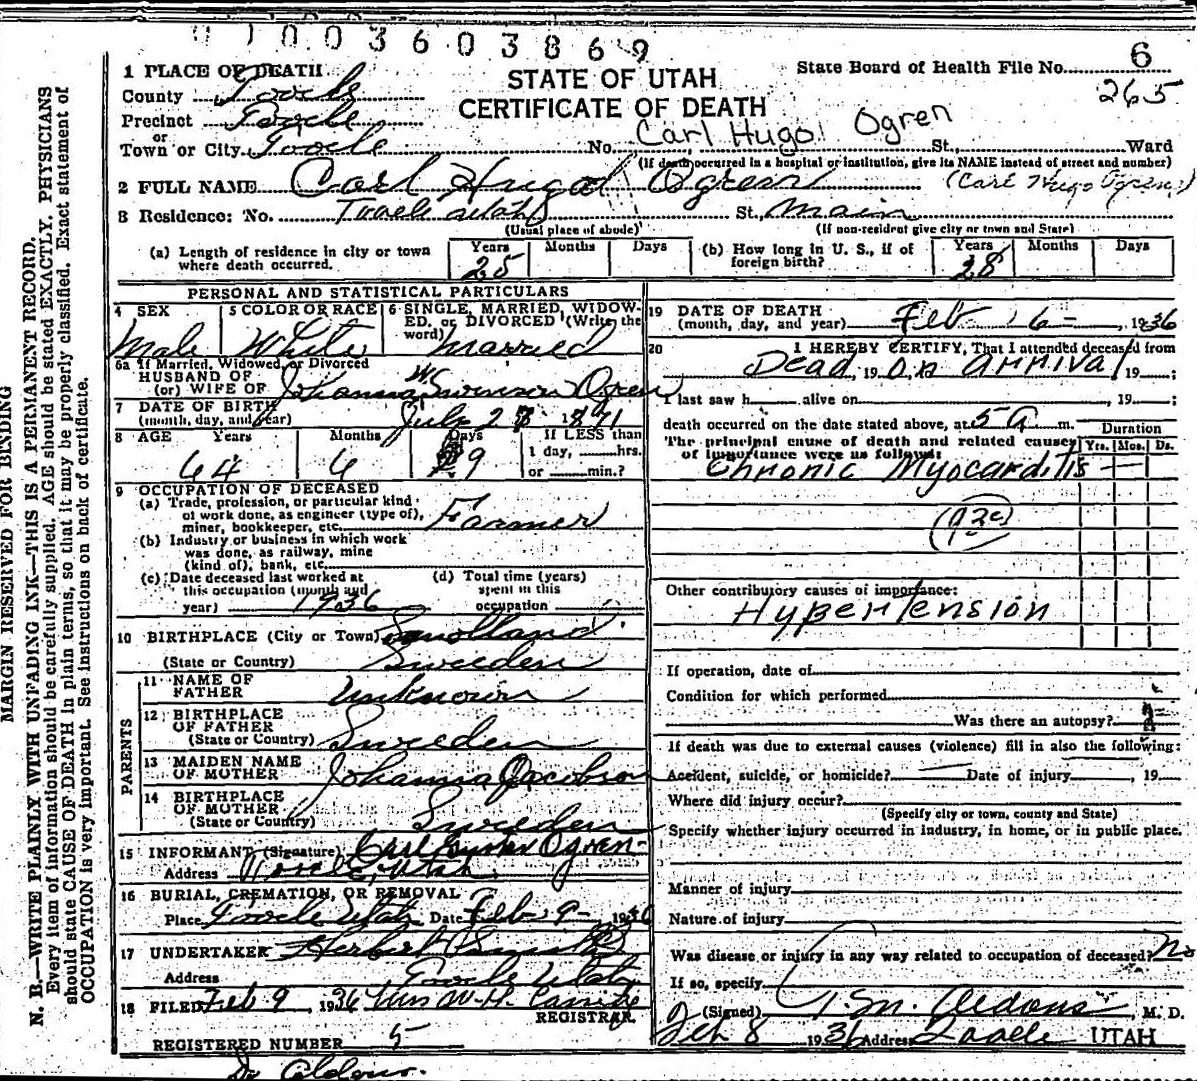 01003603869
STATE OF UTAH
CERTIFICATE OF DEATH
State Board of Health File No. 6
265
1 PLACE OF DEATH
County Tooele
Precinct Tooele
or
Town or City Tooele No. St., Ward
Carl Hugo Ogren
(If death occurred in a hospital or institution, give its NAME instead of street and number)
2 FULL NAME Carl Hugo Ogren (Carl Hugo Ogren)
3 Residence: No. Tooele Utah St. Main
(Usual place of abode) (If non-resident give city or town and State)
(a) Length of residence in city or town where death occurred. Years 25 Months Days
(b) How long in U. S., if of foreign birth? Years 28 Months Days
PERSONAL AND STATISTICAL PARTICULARS
4 SEX Male
5 COLOR OR RACE White
6 SINGLE, MARRIED, WIDOWED, or DIVORCED (Write the word) Married
6a If Married, Widowed, or Divorced
HUSBAND OF
(or) WIFE OF Johanna W Swenson Ogren
7 DATE OF BIRTH
(month, day, and year) July 1871
8 AGE Years 64 Months 6 Days 9 If LESS than
1 day, hrs.
or min.?
9 OCCUPATION OF DECEASED
(a) Trade, profession, or particular kind
of work done, as engineer (type of),
miner, bookkeeper, etc. Farmer
(b) Industry or business in which work
was done, as railway, mine
(kind of), bank, etc.
(c) Date deceased last worked at
this occupation (month and
year) 1936
(d) Total time (years)
spent in this
occupation
10 BIRTHPLACE (City or Town) Smolland
(State or Country) Sweden
PARENTS
11 NAME OF
FATHER Unknown
12 BIRTHPLACE
OF FATHER
(State or Country) Sweden
13 MAIDEN NAME
OF MOTHER Johanna Jacobson
14 BIRTHPLACE
OF MOTHER
(State or Country) Sweden
15 INFORMANT (Signature) Carl Ogren
Address Tooele, Utah
16 BURIAL, CREMATION, OR REMOVAL
Place Tooele Utah Date Feb 9 1936
17 UNDERTAKER Herbert
Address Tooele Utah
18 FILED Feb 9 1936 Mrs W. H.
REGISTRAR
REGISTERED NUMBER 5
19 DATE OF DEATH
(month, day, and year) Feb 6 1936
20 I HEREBY CERTIFY, That I attended deceased from
Dead, 19 on arrival 19 ;
I last saw h alive on , 19 ;
death occurred on the date stated above, at 5 a m.
The principal cause of death and related causes
of importance were as follows:
Duration
Yrs. Mos. Ds.
Chronic Myocarditis
(93c)
Other contributory causes of importance:
Hypertension
If operation, date of
Condition for which performed
Was there an autopsy?
If death was due to external causes (violence) fill in also the following:
Accident, suicide, or homicide? Date of injury , 19
Where did injury occur?
(Specify city or town, county and State)
Specify whether injury occurred in industry, in home, or in public place.
Manner of injury
Nature of injury
Was disease or injury in any way related to occupation of deceased? No
If so, specify
(Signed) M. D.
Feb 8 1936 Address Tooele UTAH
Dr Aldous.
MARGIN RESERVED FOR BINDING
N. B.—WRITE PLAINLY WITH UNFADING INK—THIS IS A PERMANENT RECORD.
Every item of information should be carefully supplied. AGE should be stated EXACTLY. PHYSICIANS
should state CAUSE OF DEATH in plain terms, so that it may be properly classified. Exact statement of
OCCUPATION is very important. See instructions on back of certificate.